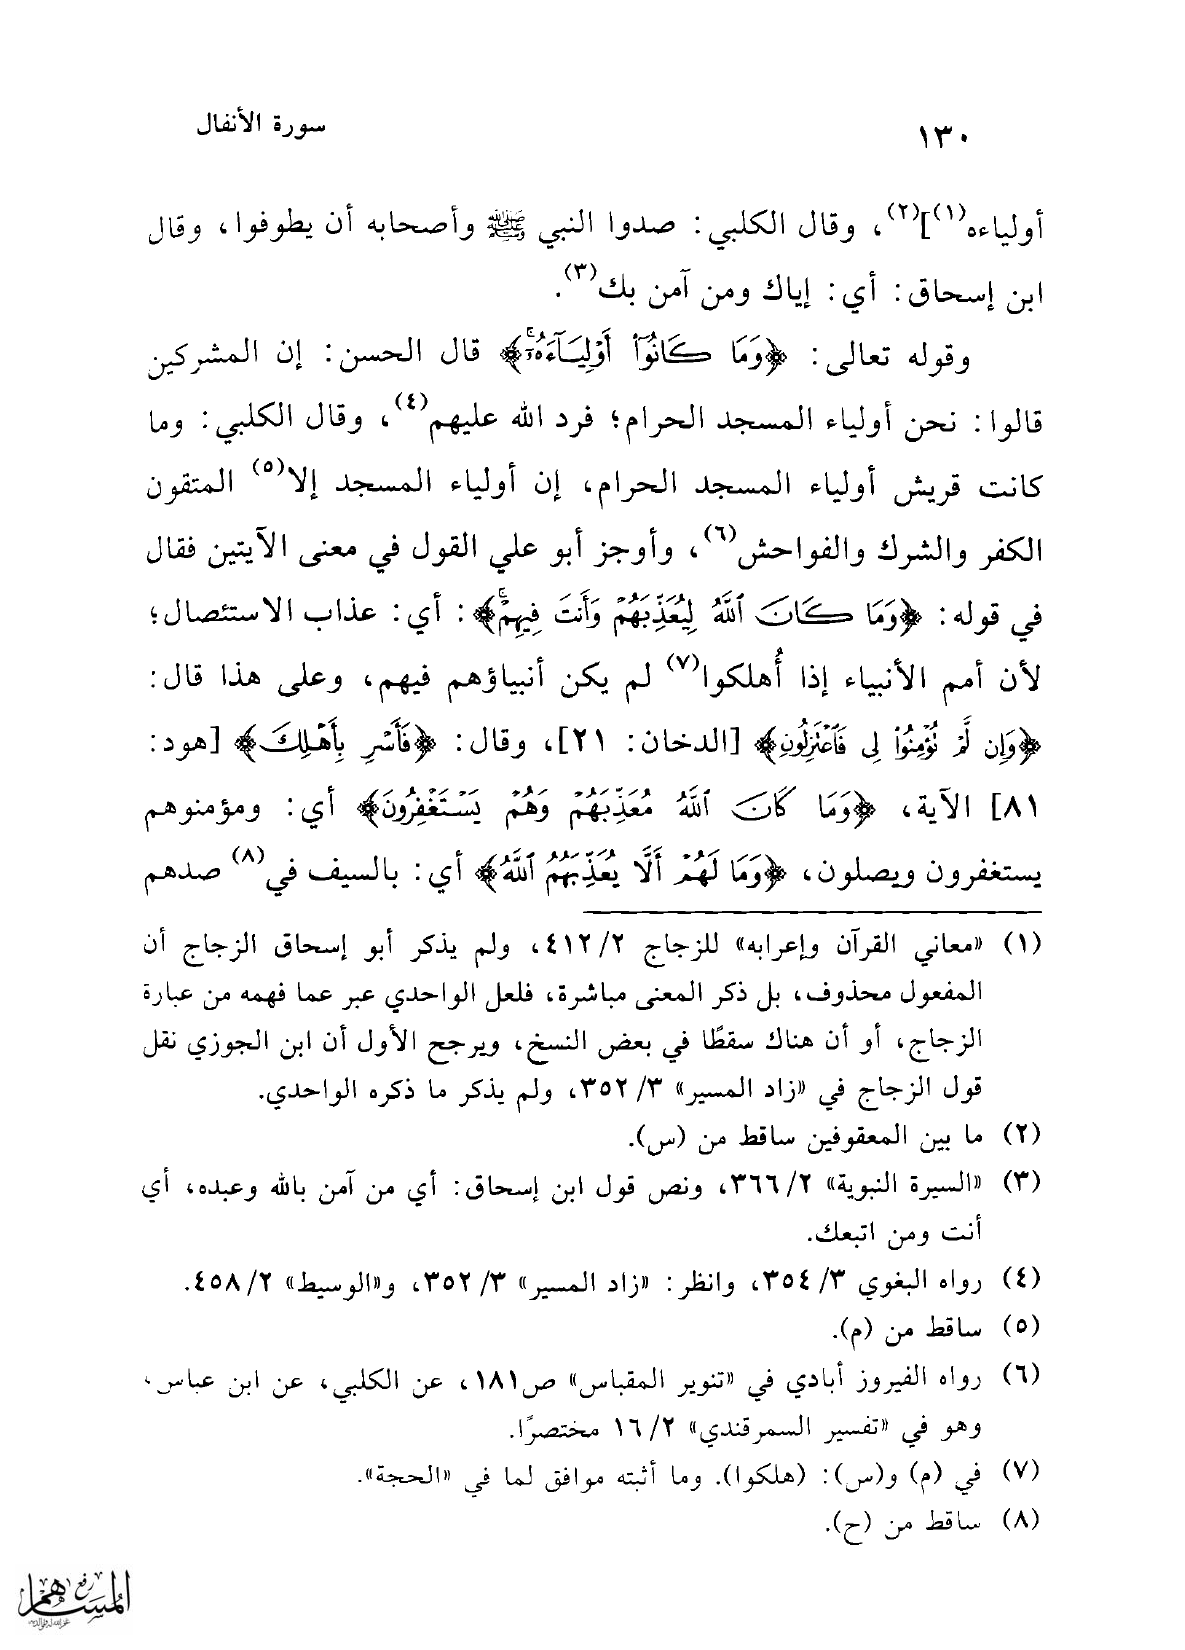 ١٣٠
سورة الأنفال
أولياءه(١)](٢)، وقال الكلبي: صدوا النبي ﷺ وأصحابه أن يطوفوا، وقال
ابن إسحاق: أي: إياك ومن آمن بك(٣).
وقوله تعالى: ﴿وَمَا كَانُوٓا۟ أَوْلِيَآءَهُۥٓۚ﴾ قال الحسن: إن المشركين
قالوا: نحن أولياء المسجد الحرام؛ فرد الله عليهم(٤)، وقال الكلبي: وما
كانت قريش أولياء المسجد الحرام، إن أولياء المسجد إلا(٥) المتقون
الكفر والشرك والفواحش(٦)، وأوجز أبو علي القول في معنى الآيتين فقال
في قوله: ﴿وَمَا كَانَ ٱللَّهُ لِيُعَذِّبَهُمْ وَأَنتَ فِيهِمْۚ﴾: أي: عذاب الاستئصال؛
لأن أمم الأنبياء إذا أُهلكوا(٧) لم يكن أنبياؤهم فيهم، وعلى هذا قال:
﴿وَإِن لَّمْ تُؤْمِنُوا۟ لِى فَٱعْتَزِلُونِ﴾ [الدخان: ٢١]، وقال: ﴿فَأَسْرِ بِأَهْلِكَ﴾ [هود:
٨١] الآية، ﴿وَمَا كَانَ ٱللَّهُ مُعَذِّبَهُمْ وَهُمْ يَسْتَغْفِرُونَ﴾ أي: ومؤمنوهم
يستغفرون ويصلون، ﴿وَمَا لَهُمْ أَلَّا يُعَذِّبَهُمُ ٱللَّهُ﴾ أي: بالسيف في(٨) صدهم
(١) «معاني القرآن وإعرابه» للزجاج ٢/ ٤١٢، ولم يذكر أبو إسحاق الزجاج أن
المفعول محذوف، بل ذكر المعنى مباشرة، فلعل الواحدي عبر عما فهمه من عبارة
الزجاج، أو أن هناك سقطًا في بعض النسخ، ويرجح الأول أن ابن الجوزي نقل
قول الزجاج في «زاد المسير» ٣/ ٣٥٢، ولم يذكر ما ذكره الواحدي.
(٢) ما بين المعقوفين ساقط من (س).
(٣) «السيرة النبوية» ٢/ ٣٦٦، ونص قول ابن إسحاق: أي من آمن بالله وعبده، أي
أنت ومن اتبعك.
(٤) رواه البغوي ٣/ ٣٥٤، وانظر: «زاد المسير» ٣/ ٣٥٢، و«الوسيط» ٢/ ٤٥٨.
(٥) ساقط من (م).
(٦) رواه الفيروز أبادي في «تنوير المقباس» ص١٨١، عن الكلبي، عن ابن عباس،
وهو في «تفسير السمرقندي» ٢/ ١٦ مختصرًا.
(٧) في (م) و(س): (هلكوا). وما أثبته موافق لما في «الحجة».
(٨) ساقط من (ح).